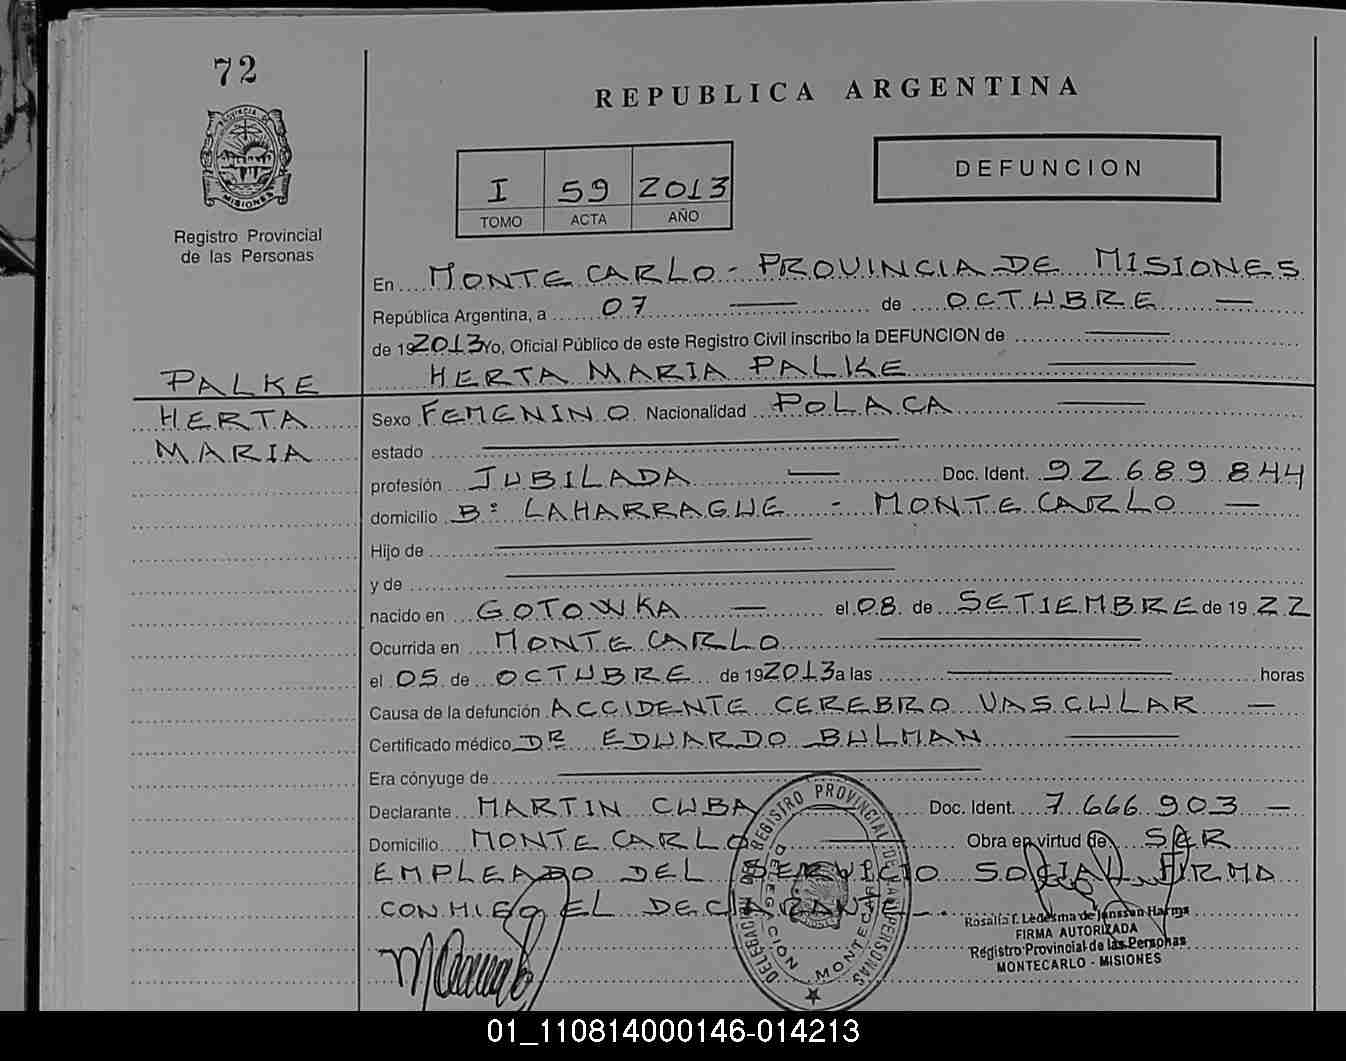 72
PROVINCIA DE
MISIONES
Registro Provincial
de las Personas
REPUBLICA ARGENTINA
I 59 2013
TOMO ACTA AÑO
DEFUNCION
En MONTECARLO - PROVINCIA DE MISIONES
República Argentina, a 07 de OCTUBRE
de 192013 Yo, Oficial Público de este Registro Civil inscribo la DEFUNCION de
HERTA MARIA PALKE
PALKE
HERTA
MARIA
Sexo FEMENINO Nacionalidad POLACA
estado
profesión JUBILADA Doc. Ident. 92.689.844
domicilio Bº LAHARRAGUE - MONTECARLO
Hijo de
y de
nacido en GOTOWKA el 08 de SETIEMBRE de 19 22
Ocurrida en MONTECARLO
el 05 de OCTUBRE de 192013 a las horas
Causa de la defunción ACCIDENTE CEREBRO VASCULAR
Certificado médico DR EDUARDO BULMAN
Era cónyuge de
Declarante MARTIN CUBA Doc. Ident. 7.666.903
Domicilio MONTECARLO Obra en virtud de SER
EMPLEADO DEL SERVICIO SOCIAL FIRMA
CONMIGO EL DECLARANTE -.
DELEGACION MONTECARLO
Rosalía I. Ledesma de Janssen Harms
FIRMA AUTORIZADA
Registro Provincial de las Personas
MONTECARLO - MISIONES
01_110814000146-014213